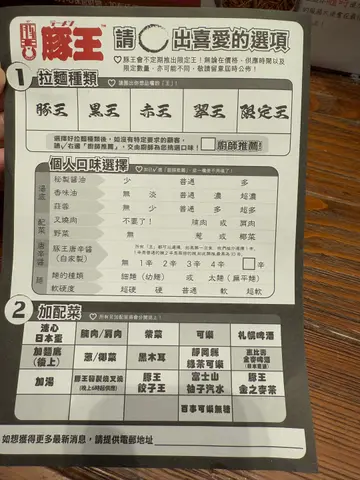 ラーメン
豚王™
請○出喜愛的選項
♡豚王會不定期推出限定王!無論在價格、供應時間以及
限定數量,亦可能不同,敬請留意屆時公佈!
1 拉麵種類
豚王 黑王 赤王 翠王 限定王
選擇好拉麵種類後,如沒有特定要求的顧客,
請✓右邊「廚師推薦」,交由廚師為您挑選口味!
□廚師推薦!
個人口味選擇
湯底
秘製醬油 少 普通 多
香味油 無 淡 普通 濃 超濃
蒜蓉 無 少 普通 多 超多
配菜
叉燒肉 不要了! 腩肉 或 肩肉
野菜 無 葱 或 椰菜
唐辛醬
豚王唐辛醬
(自家製)
無 1辛 2辛 3辛 4辛 □辛
麵
麵的種類 細麵(幼麵) 或 太麵(扁平麵)
軟硬度 超硬 硬 普通 軟 超軟
2 加配菜
溏心
日本蛋
腩肉/肩肉 紫菜 可樂 札幌啤酒
加麵底
(後上)
葱/椰菜 黑木耳
靜岡縣
綠茶可樂
惠比壽
金裝啤酒
加湯
豚王
餃子王
富士山
柚子汽水
豚王
金之麥茶
百事可樂無糖
如想獲得更多最新消息,請提供電郵地址